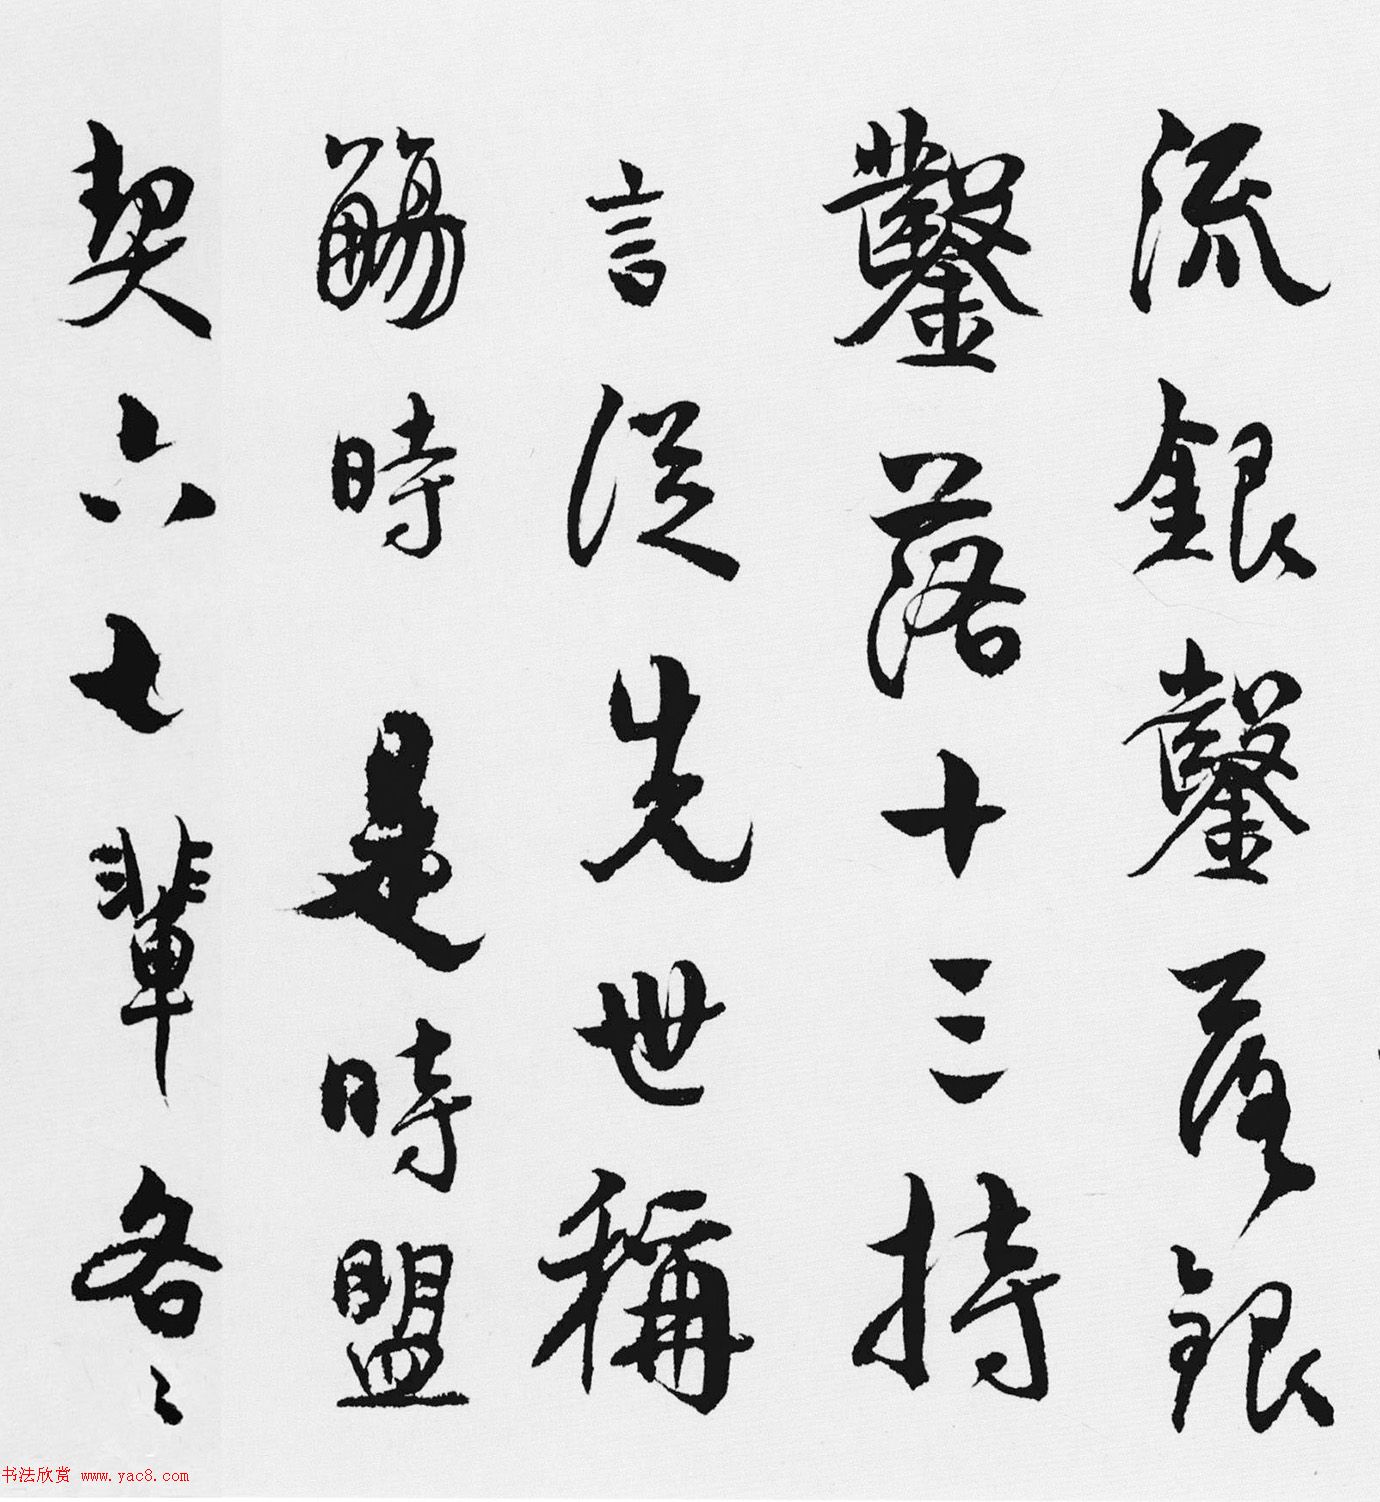 流銀鑿落銀
鑿落十三持
言從先世稱
觴時是時盟
契六七輩各〻
书法欣赏 www.yac8.com